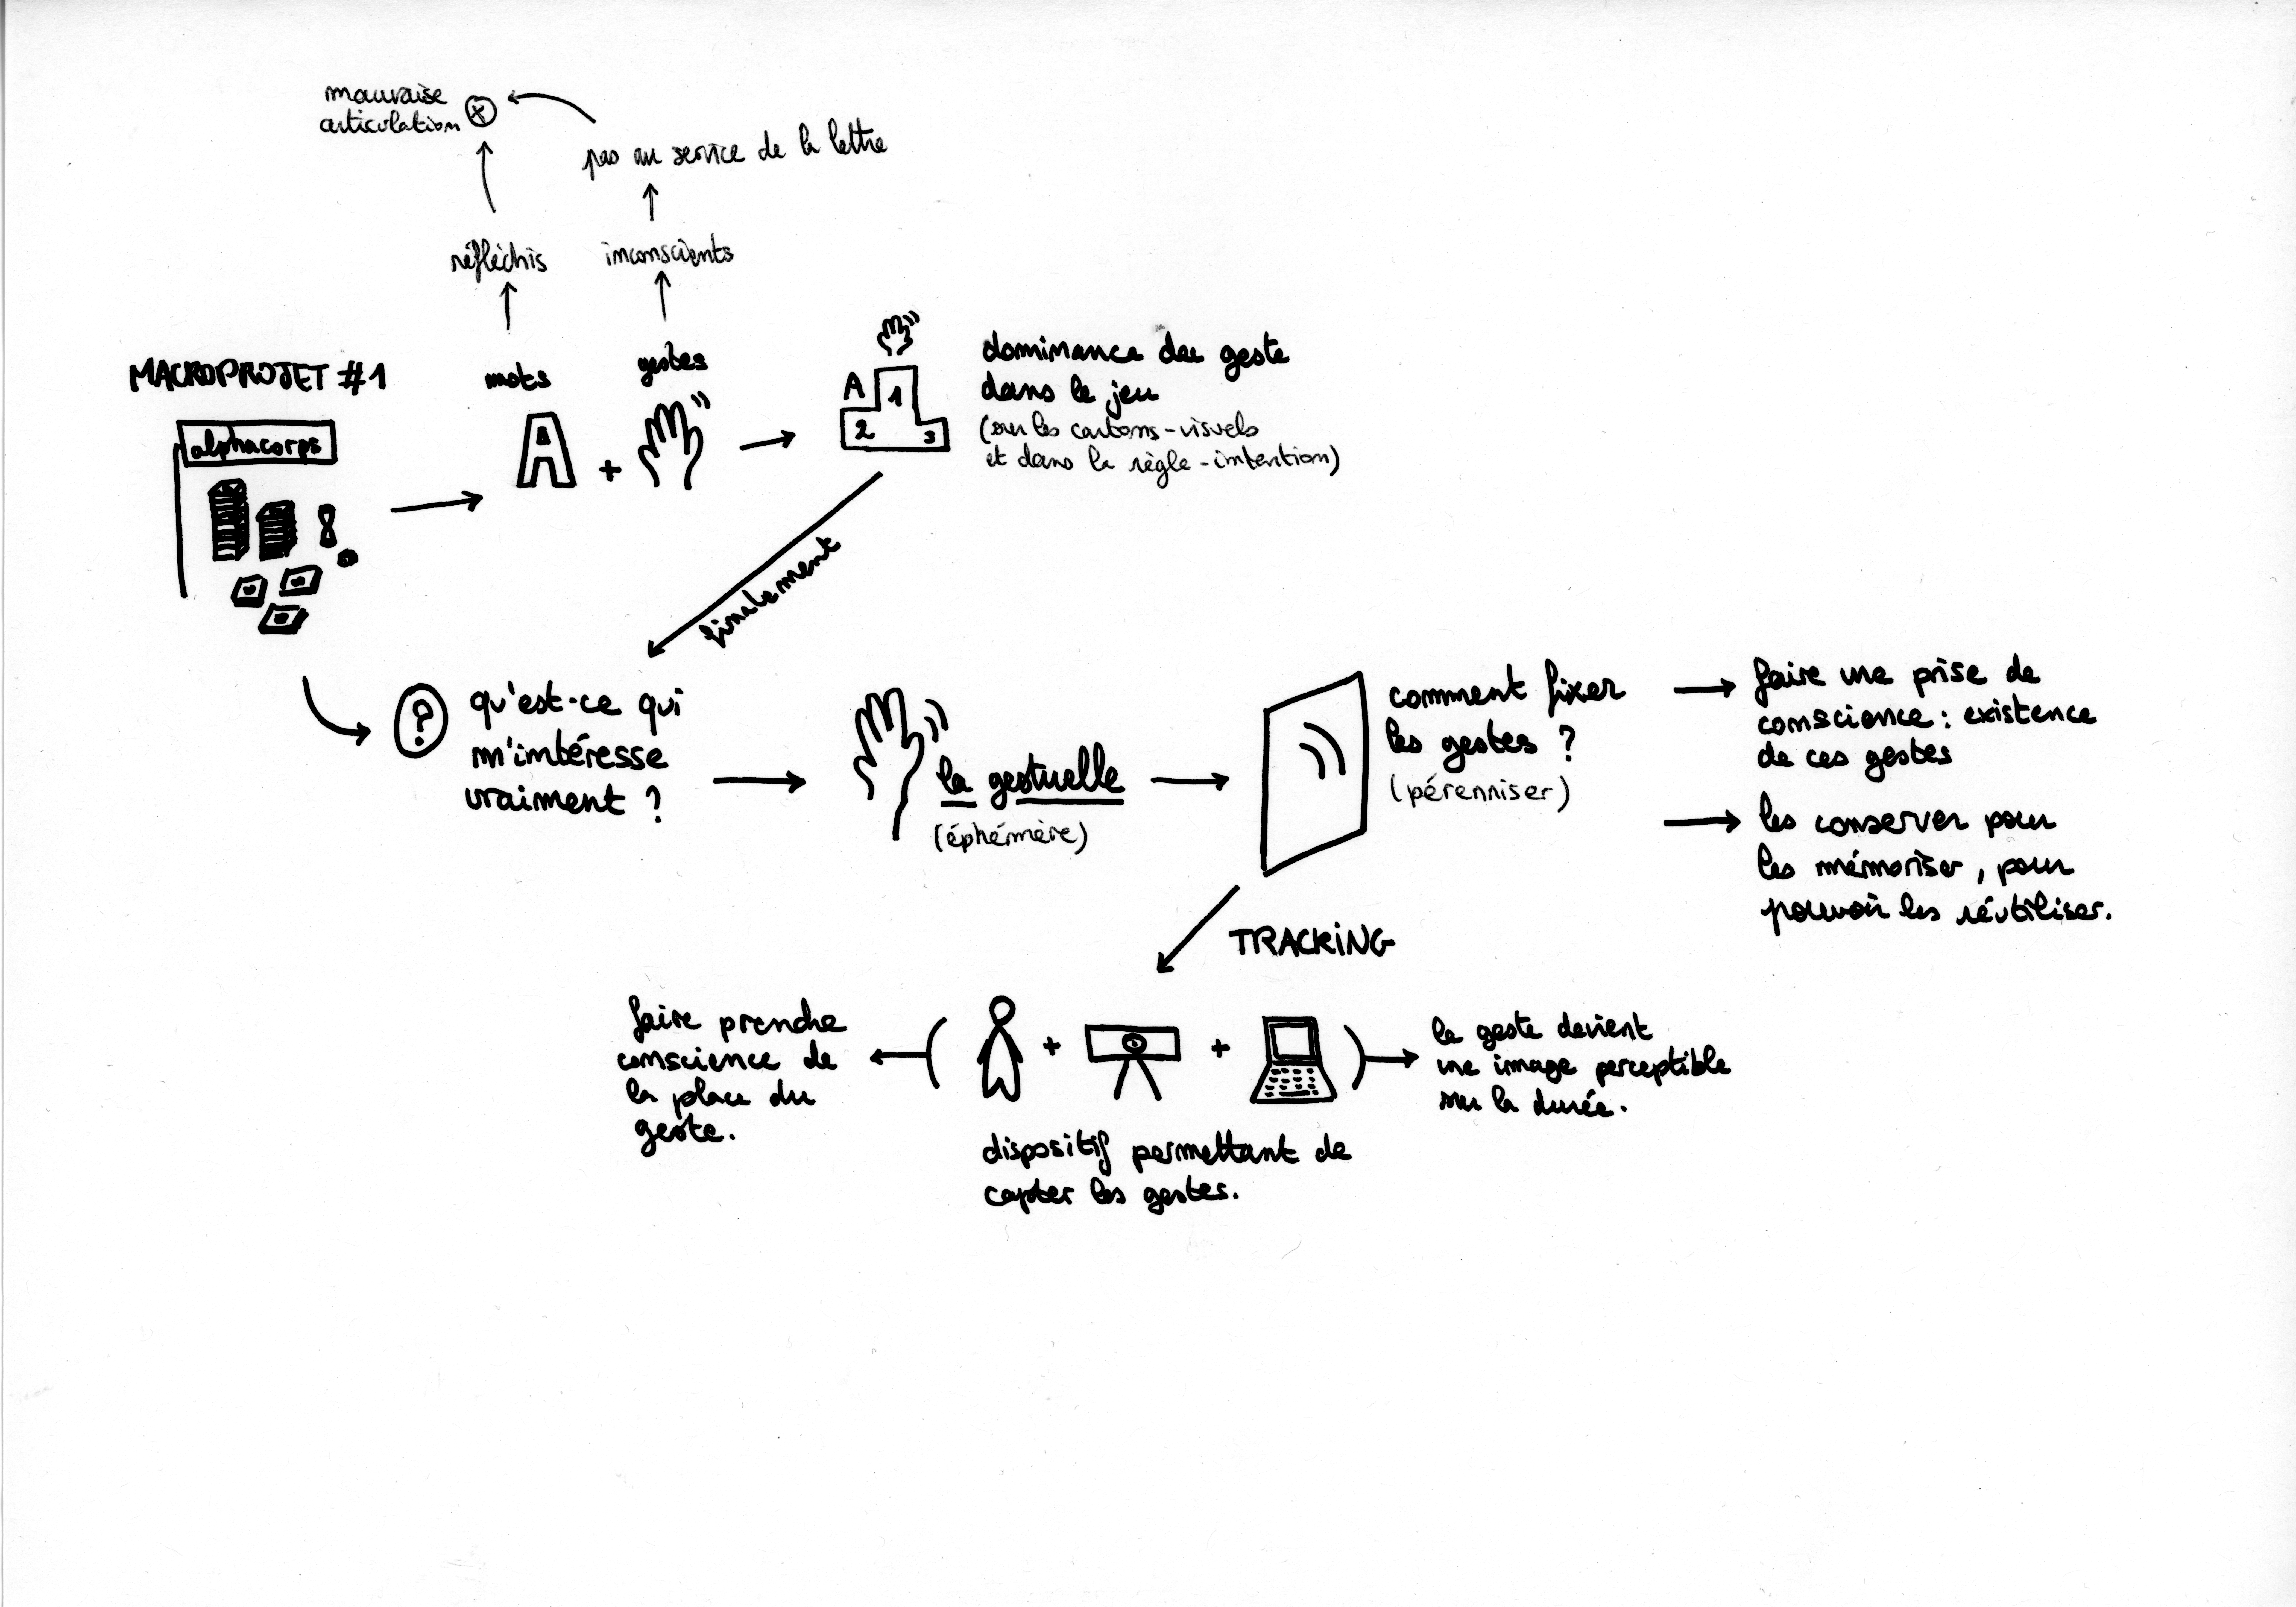 mauvaise
articulation
pas au service de la lettre
réfléchis
inconscients
MACROPROJET #1
mots
gestes
alphacorps
A
+
A
1
2
3
dominance du geste
dans le jeu
(sur les cartons-visuels
et dans la règle-intention)
finalement
?
qu'est-ce qui
m'intéresse
vraiment ?
la gestuelle
(éphémère)
comment fixer
les gestes ?
(pérenniser)
faire une prise de
conscience : existence
de ces gestes
les conserver pour
les mémoriser, pour
pouvoir les réutiliser.
TRACKING
faire prendre
conscience de
la place du
geste.
( + + )
le geste devient
une image perceptible
sur la durée.
dispositif permettant de
capter les gestes.